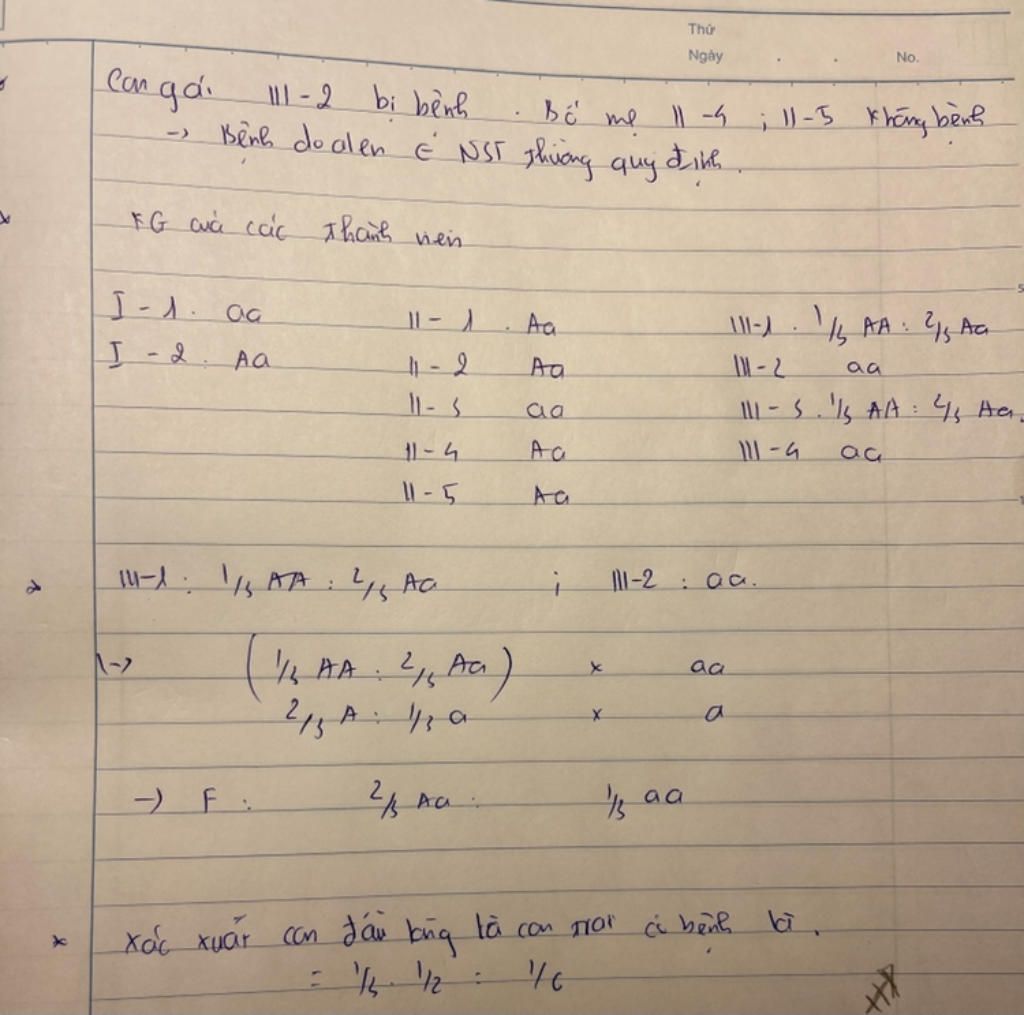 Thứ
Ngày . . No.
Con gái III-2 bị bệnh . Bố mẹ II-4 ; II-5 không bệnh
-> Bệnh do alen ∈ NST thường quy định.
KG của các thành viên
I-1. aa II-1. Aa III-1. 1/3 AA : 2/3 Aa
I-2. Aa II-2 Aa III-2 aa
II-3 aa III-3. 1/3 AA : 2/3 Aa.
II-4 Aa III-4 aa
II-5 Aa
III-1: 1/3 AA : 2/3 Aa ; III-2 : aa.
-> (1/3 AA : 2/3 Aa) x aa
2/3 A : 1/3 a x a
-> F : 2/3 Aa : 1/3 aa
* Xác xuất con đầu lòng là con trai bị bệnh là.
= 1/3 . 1/2 = 1/6